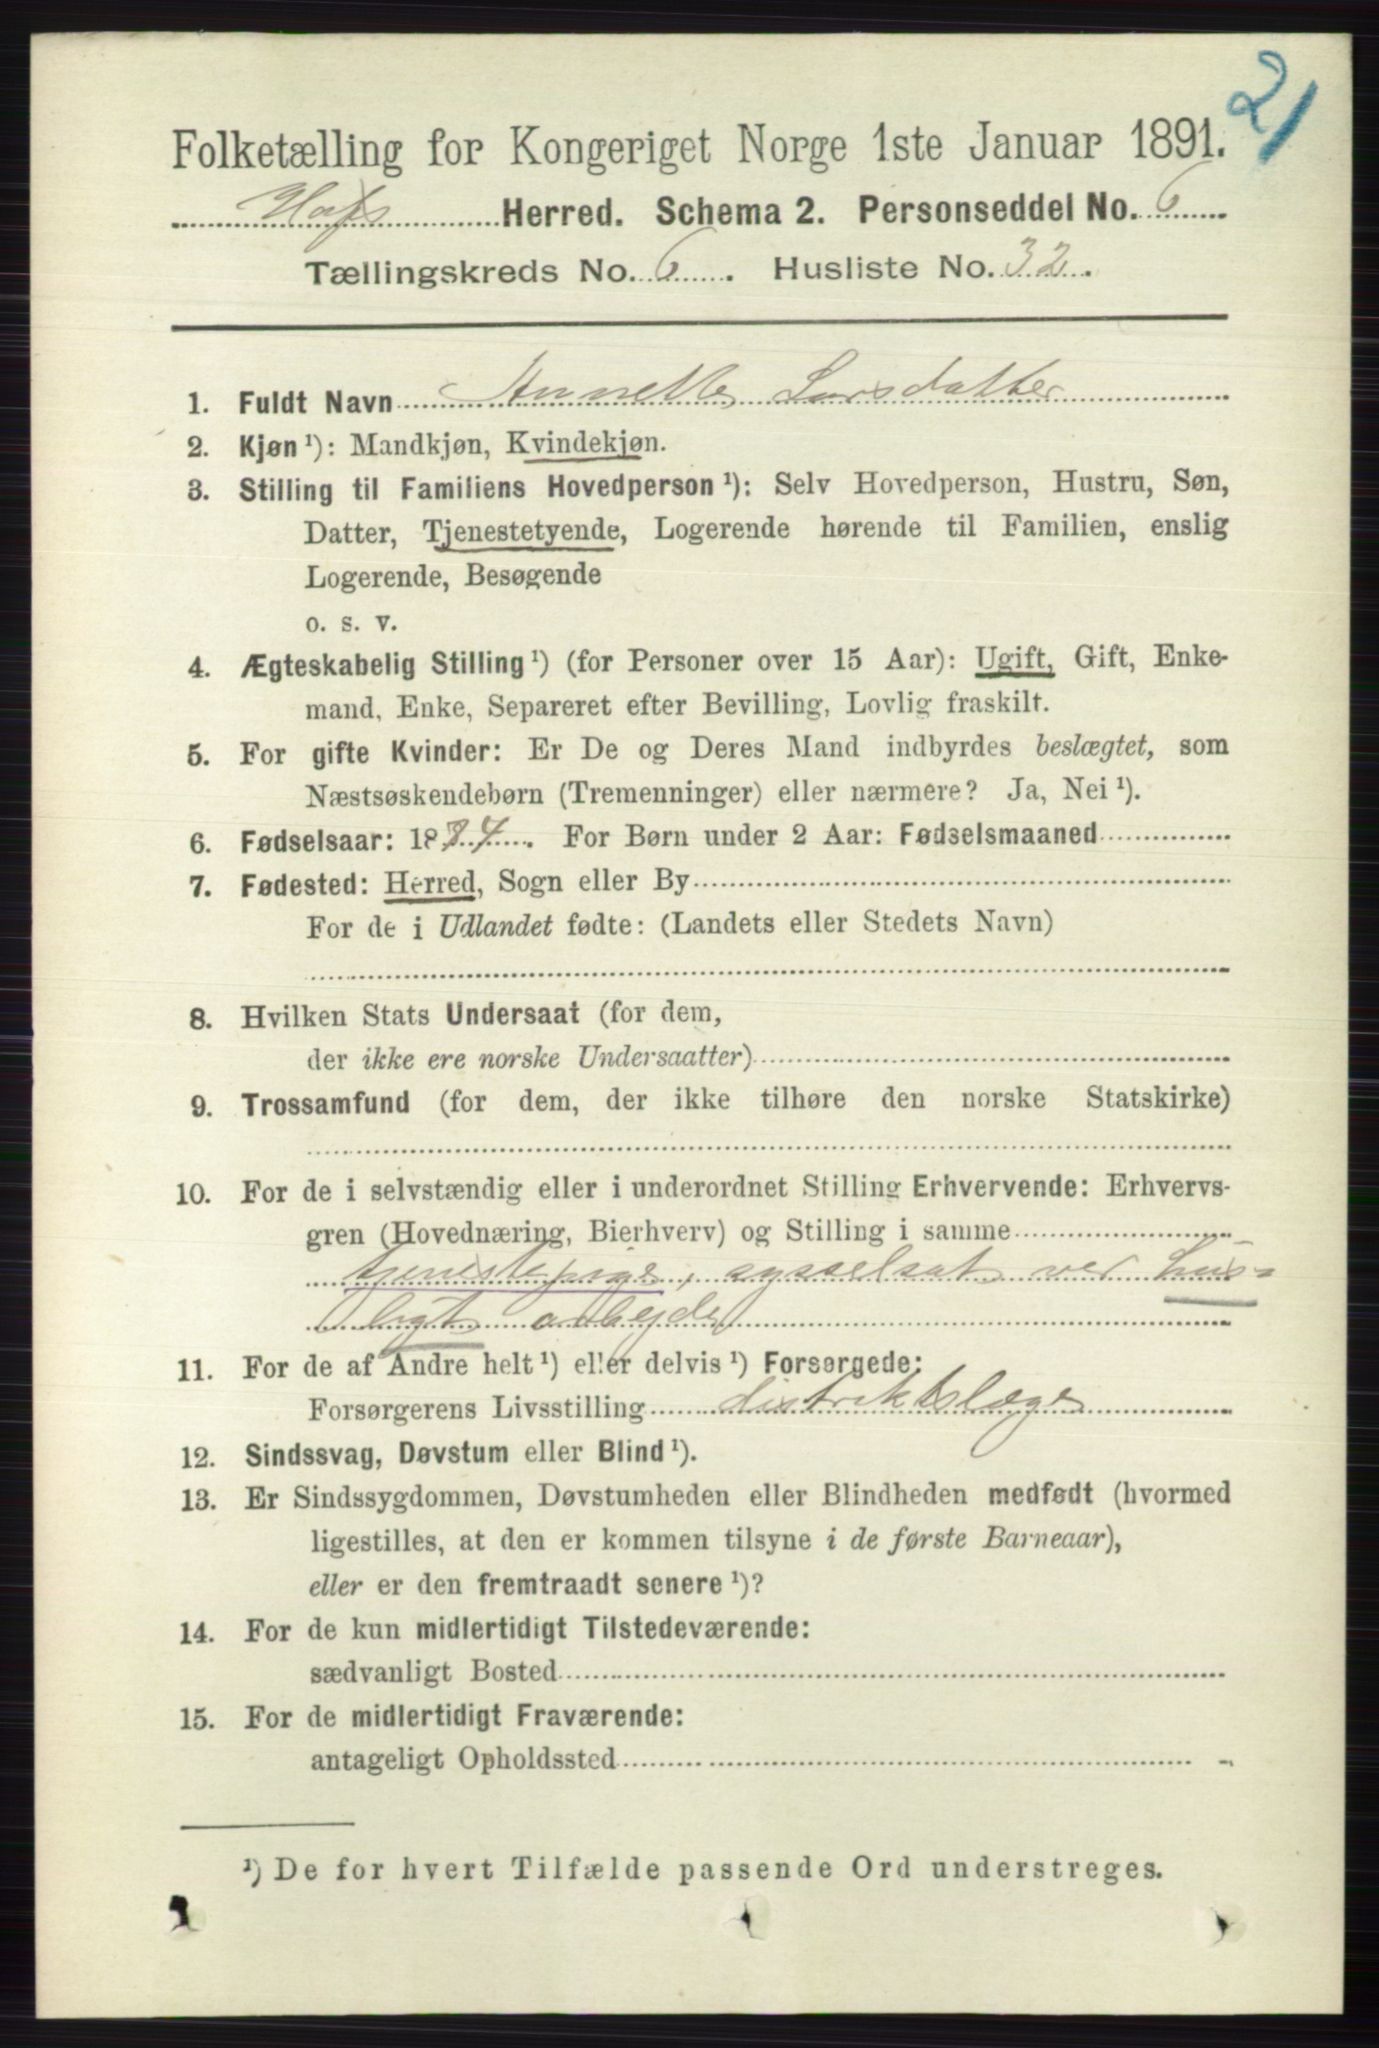 21
Folketælling for Kongeriget Norge 1ste Januar 1891.
Hafs Herred. Schema 2. Personseddel No. 6
Tællingskreds No. 6. Husliste No. 32.
1. Fuldt Navn Annette Larsdatter
2. Kjøn ¹): Mandkjøn, Kvindekjøn.
3. Stilling til Familiens Hovedperson ¹): Selv Hovedperson, Hustru, Søn,
Datter, Tjenestetyende, Logerende hørende til Familien, enslig
Logerende, Besøgende
o. s. v.
4. Ægteskabelig Stilling ¹) (for Personer over 15 Aar): Ugift, Gift, Enke-
mand, Enke, Separeret efter Bevilling, Lovlig fraskilt.
5. For gifte Kvinder: Er De og Deres Mand indbyrdes beslægtet, som
Næstsøskendebørn (Tremenninger) eller nærmere? Ja, Nei ¹).
6. Fødselsaar: 1874. For Børn under 2 Aar: Fødselsmaaned
7. Fødested: Herred, Sogn eller By
For de i Udlandet fødte: (Landets eller Stedets Navn)
8. Hvilken Stats Undersaat (for dem,
der ikke ere norske Undersaatter)
9. Trossamfund (for dem, der ikke tilhøre den norske Statskirke)
10. For de i selvstændig eller i underordnet Stilling Erhvervende: Erhvervs-
gren (Hovednæring, Bierhverv) og Stilling i samme
tjenestepige, sysselsat ved hus-
ligt arbejde
11. For de af Andre helt ¹) eller delvis ¹) Forsørgede:
Forsørgerens Livsstilling distriktslæge
12. Sindssvag, Døvstum eller Blind ¹).
13. Er Sindssygdommen, Døvstumheden eller Blindheden medfødt (hvormed
ligestilles, at den er kommen tilsyne i de første Barneaar),
eller er den fremtraadt senere ¹)?
14. For de kun midlertidigt Tilstedeværende:
sædvanligt Bosted
15. For de midlertidigt Fraværende:
antageligt Opholdssted
¹) De for hvert Tilfælde passende Ord understreges.